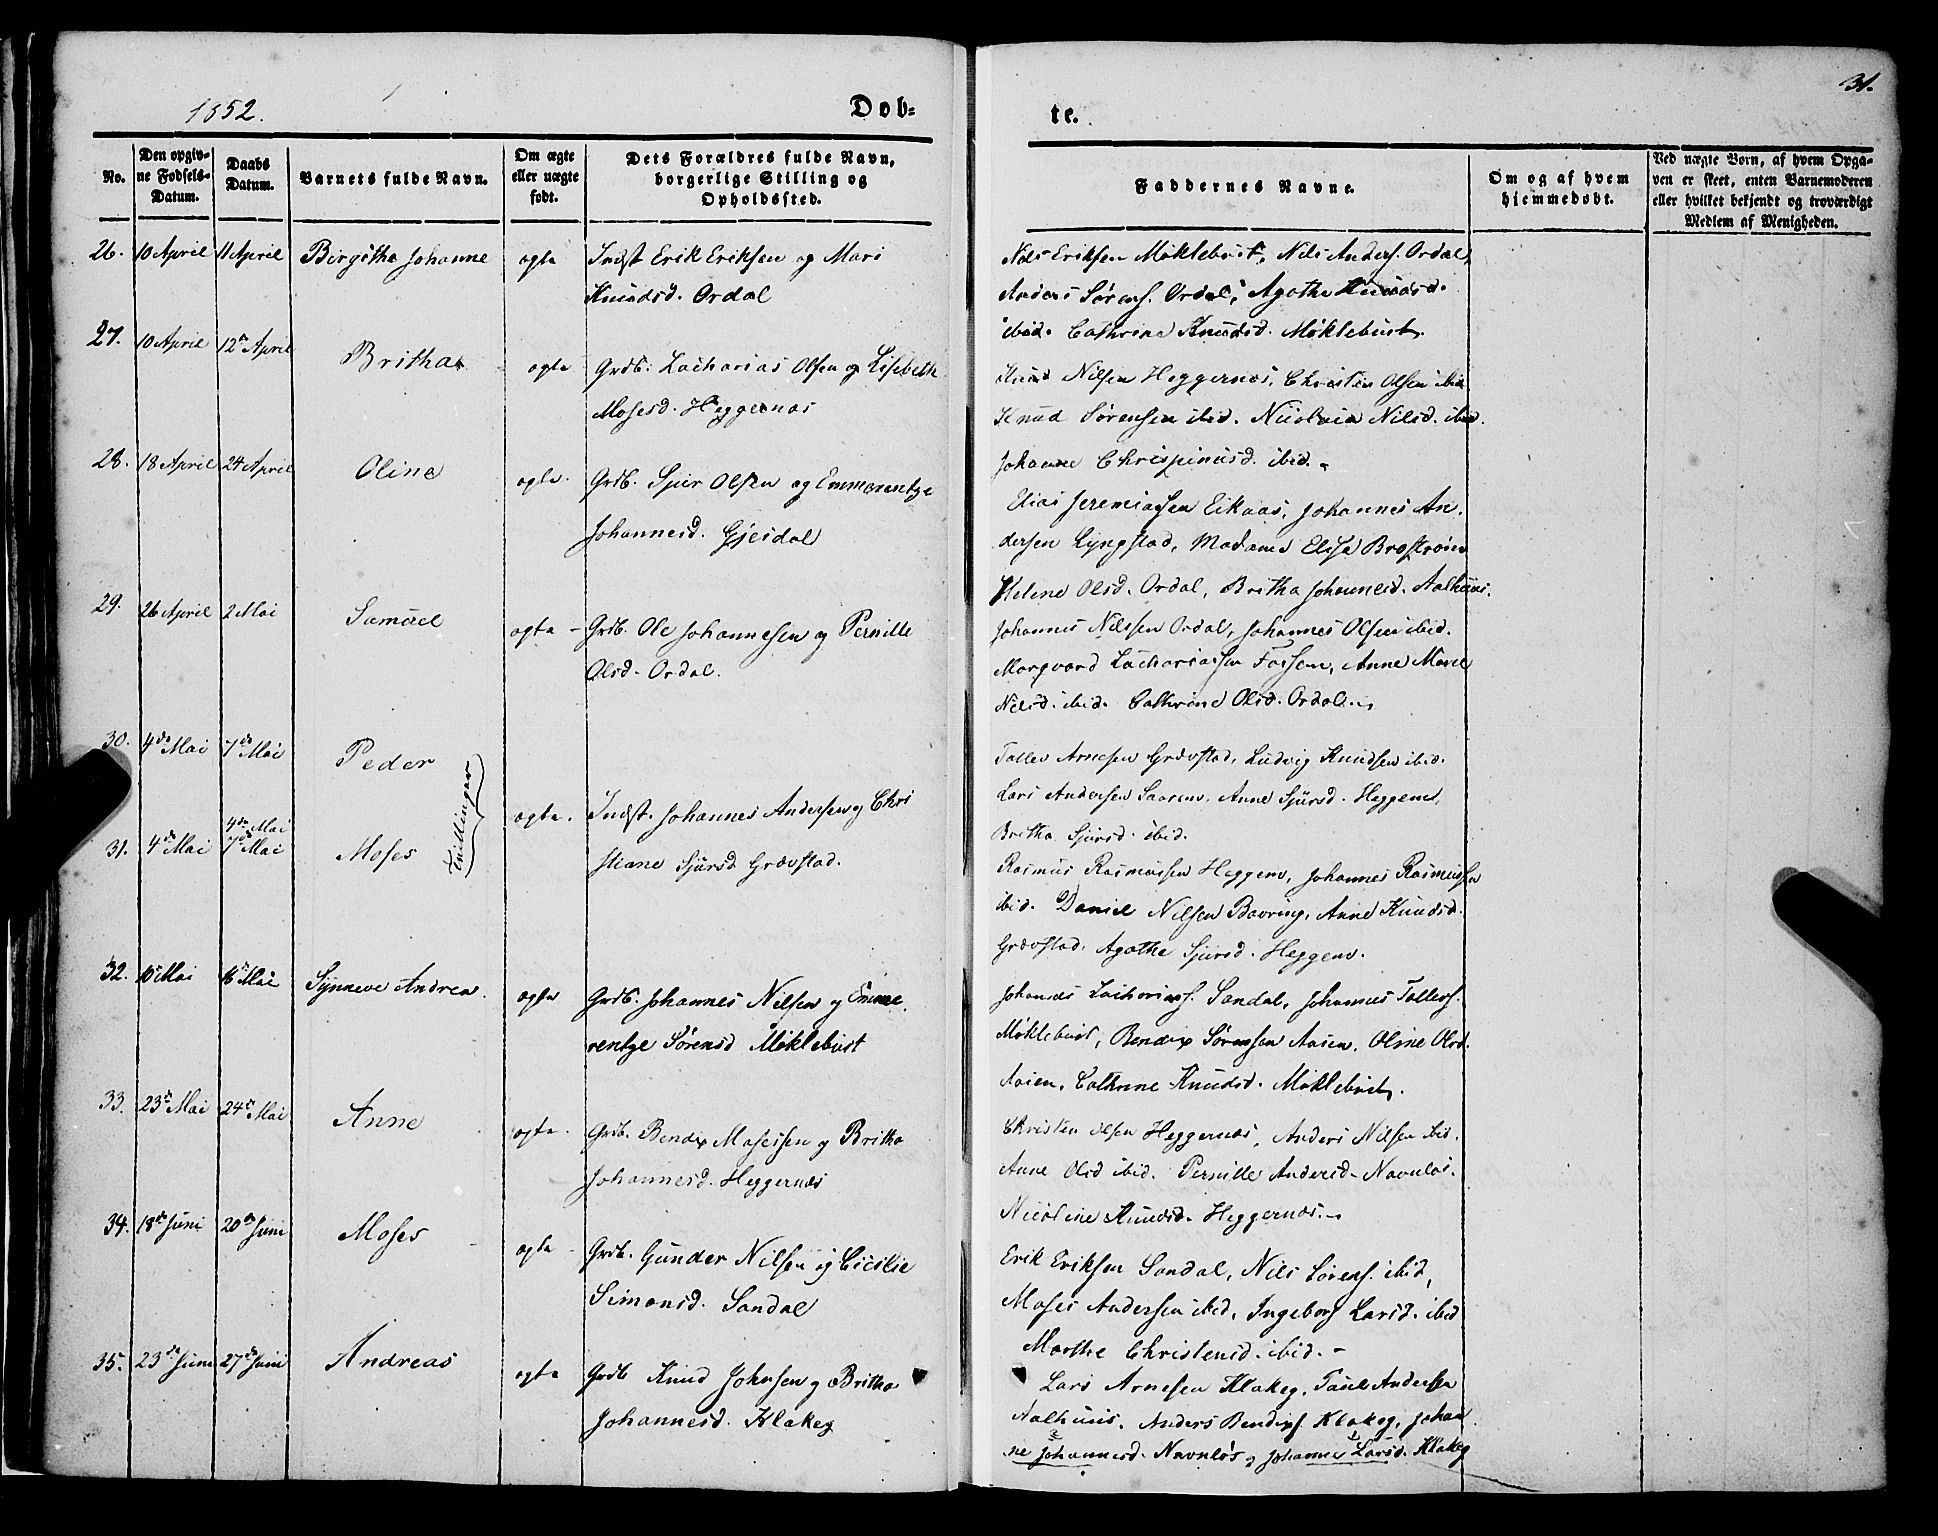 1852.
Døb=
te.
31.
No.
Den opgiv=
ne Fødsels=
Datum.
Daabs
Datum.
Barnets fulde Navn.
Om ægte
eller uægte
født.
Dets Forældres fulde Navn,
borgerlige Stilling og
Opholdssted.
Faddernes Navne.
Om og af hvem
hjemmedøbt.
Ved uægte Børn, af hvem Opga=
ven er skeet, enten Barnemoderen
eller hvilket bekjendt og troværdigt
Medlem af Menigheden.
26. 10 April 11 April Birgitha Johanne ægte Indst Erik Eriksen og Mari
Knudsd. Ordal
Nils Eriksen Møklebust, Nils Anders. Ordal,
Anders Sørens. Ordal, Agathe Knudsd.
ibid. Cathrine Knudsd. Møklebust.
27. 10 April 12te April Britha ægte Grdb. Zacharias Olsen og Lisebeth
Mosesd. Heggernæs
Knud Nilsen Heggernæs, Christen Olsen ibid
Knud Sørensen ibid. Nicolaia Nilsd. ibid.
Johanne Chrispinusd. ibid.
28. 18 April 24 April Oline ægte Grdb. Sjur Olsen og Emmerentze
Johannesd. Gjesdal
Elias Jeremiassen Eikaas, Johannes An-
dersen Lyngstad, Madame Elisa Brostrøm
Helene Olsd. Ordal, Britha Johannesd. Aalhuus.
29. 26 April 2 Mai Samuel ægte Grdb. Ole Johannesen og Pernille
Olsd. Ordal.
Johannes Nilssen Ordal, Johannes Olsen ibid.
Margvard Zachariassen Fossen, Anne Marie
Nilsd. ibid. Cathrine Olsd. Ordal.
30. 4de Mai 7de Mai Peder
Tvillinger
ægte. Indst. Johannes Andersen og Chri
stiane Sjursd Grævstad.
Tollev Arnesen Grævstad, Ludvig Knudsen ibid.
Lars Andersen Saarem, Anne Sjursd. Heggem,
Britha Sjursd. ibid.
31. 4de Mai 4de Mai
7de Mai Moses
Rasmus Rasmussen Heggem, Johannes Rasmussen
ibid. Daniel Nilsen Bovring, Anne Knudsd.
Grævstad, Agathe Sjursd. Heggem.
32. 10de Mai 16de Mai Synneve Andrea. ægte Grdb. Johannes Nilsen og Emme-
rentze Sørensd Møklebust
Johannes Zacharias. Sandal, Johannes Tollefs.
Møklebust, Bendix Sørensen Aasen, Oline Olsd.
Aasen, Cathrine Knudsd. Møklebust.
33. 23de Mai 24de Mai Anne ægte Grdb. Bendix Mosessen og Britha
Johannesd. Heggernæs
Christen Olsen Heggernæs, Anders Nilsen ibid.
Anne Olsd ibid. Pernille Andersd. Navnløs.
Nicoline Knudsd. Heggernæs.
34. 18de Juni 20de Juni Moses ægte Grdb. Gunder Nilsen og Cicilie
Simonsd. Sandal
Erik Eriksen Sandal, Nils Sørens. ibid,
Moses Andersen ibid, Ingeborg Larsd. ibid
Marthe Christensd. ibid.
35. 23de Juni 27de Juni Andreas ægte Grdb Knud Johnsen og Britha
Johannesd. Klakeg
Lars Arnesen Klakeg, Paul Andersen
Aalhuus, Anders Bendixs. Klakeg, Johan
ne Johannesd. Navnløs, Johanne Larsd. Klakeg